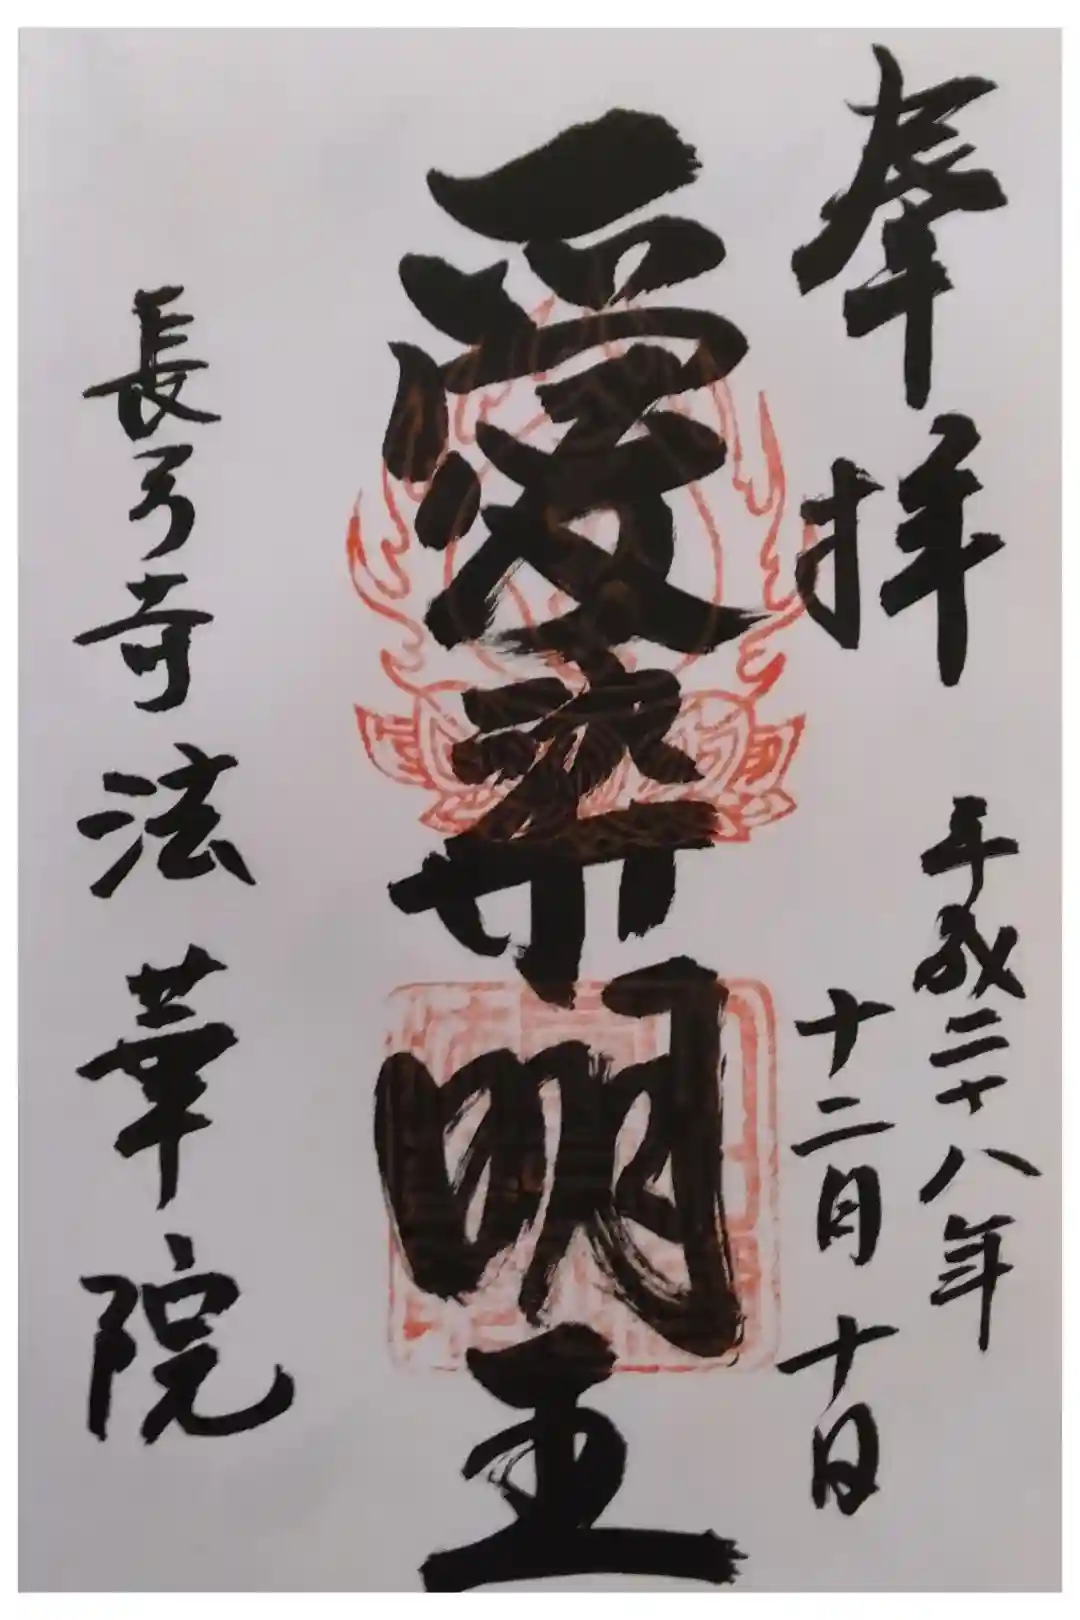 奉拝
平成二十八年
十二月十日
愛染明王
長弓寺法華院